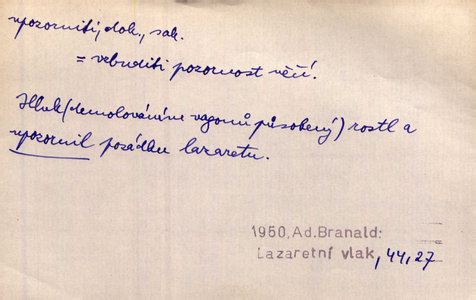 upozorniti, dok., sak.
= vzbuditi pozornost něčí.
Hluk (demolováním vagonů působený) rostl a
upozornil posádku lazaretu.
1950, Ad. Branald:
Lazaretní vlak, 44, 27